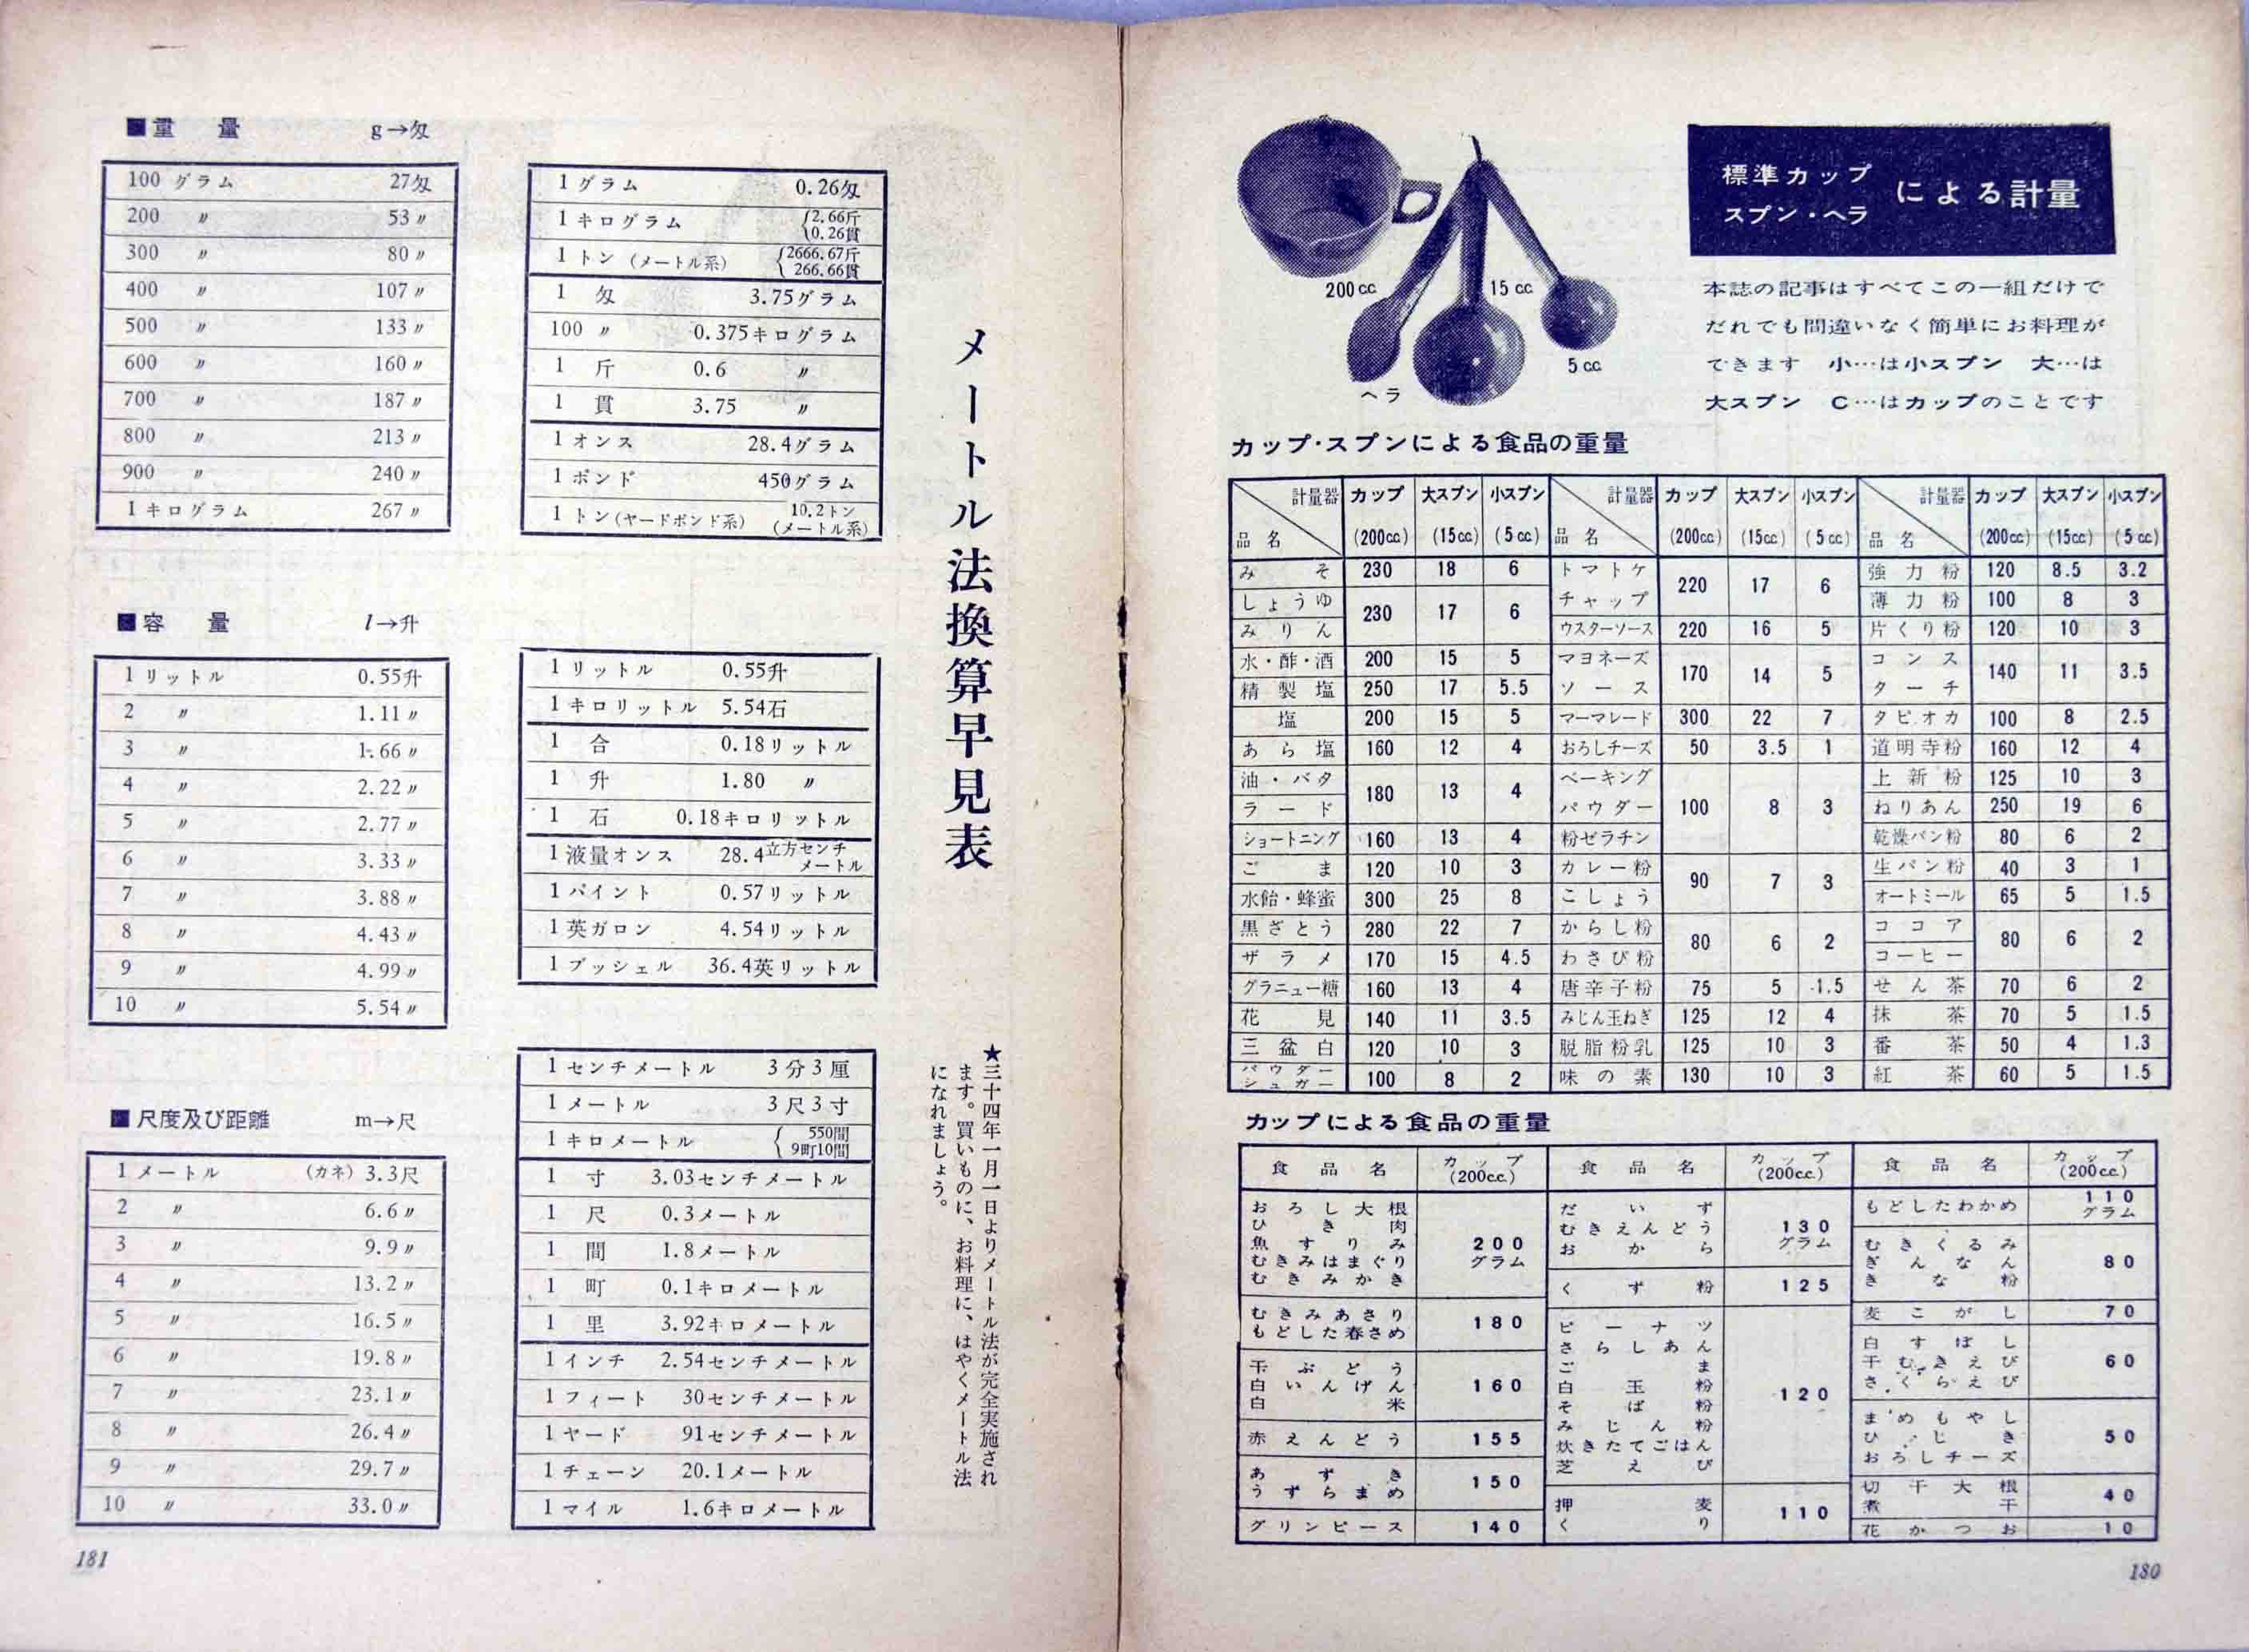 標準カップ
スプン・ヘラ による計量
本誌の記事はすべてこの一組だけで
だれでも間違いなく簡単にお料理が
できます 小…は小スプン 大…は
大スプン C…はカップのことです
200cc
15cc
5cc
ヘラ
カップ・スプンによる食品の重量
計量器 品名 カップ(200cc) 大スプン(15cc) 小スプン(5cc)
みそ 230 18 6
しょうゆ
みりん 230 17 6
水・酢・酒 200 15 5
精製塩 250 17 5.5
塩 200 15 5
あら塩 160 12 4
油・バタ
ラード 180 13 4
ショートニング 160 13 4
ごま 120 10 3
水飴・蜂蜜 300 25 8
黒ざとう 280 22 7
ザラメ 170 15 4.5
グラニュー糖 160 13 4
花見 140 11 3.5
三盆白 120 10 3
パウダーシュガー 100 8 2
計量器 品名 カップ(200cc) 大スプン(15cc) 小スプン(5cc)
トマトケ
チャップ 220 17 6
ウスターソース 220 16 5
マヨネーズ
ソース 170 14 5
マーマレード 300 22 7
おろしチーズ 50 3.5 1
ベーキング
パウダー 100 8 3
粉ゼラチン
カレー粉
こしょう 90 7 3
からし粉
わさび粉 80 6 2
唐辛子粉 75 5 1.5
みじん玉ねぎ 125 12 4
脱脂粉乳 125 10 3
味の素 130 10 3
計量器 品名 カップ(200cc) 大スプン(15cc) 小スプン(5cc)
強力粉 120 8.5 3.2
薄力粉 100 8 3
片くり粉 120 10 3
コンス
ターチ 140 11 3.5
タピオカ 100 8 2.5
道明寺粉 160 12 4
上新粉 125 10 3
ねりあん 250 19 6
乾燥パン粉 80 6 2
生パン粉 40 3 1
オートミール 65 5 1.5
ココア
コーヒー 80 6 2
せん茶 70 6 2
抹茶 70 5 1.5
番茶 50 4 1.3
紅茶 60 5 1.5
カップによる食品の重量
食品名 カップ(200cc.)
おろし大根
ひき肉
魚すりみ 200
むきみはまぐり グラム
むきみかき
むきみあさり
もどした春さめ 180
干ぶどう
白いんげん 160
白米
赤えんどう 155
あずき
うずらまめ 150
グリンピース 140
食品名 カップ(200cc.)
だいず
むきえんどう 130
おから グラム
くず粉 125
ピーナツ
さらしあん
ごま
白玉粉 120
そば粉
みじん粉
炊きたてごはん
芝えび
押麦
くり 110
食品名 カップ(200cc.)
もどしたわかめ 110グラム
むきくるみ
ぎんなん 80
きな粉
麦こがし 70
白すぼし
干むきえび 60
さくらえび
まめもやし
ひじき 50
おろしチーズ
切干大根
煮干 40
花かつお 10
180
メートル法換算早見表
★三十四年一月一日よりメートル法が完全実施され
ます。買いものに、お料理に、はやくメートル法
になれましょう。
■重量 g→匁
100グラム 27匁
200 〃 53〃
300 〃 80〃
400 〃 107〃
500 〃 133〃
600 〃 160〃
700 〃 187〃
800 〃 213〃
900 〃 240〃
1キログラム 267〃
1グラム 0.26匁
1キログラム {2.66斤
0.26貫
1トン(メートル系) {2666.67斤
266.66貫
1匁 3.75グラム
100〃 0.375キログラム
1斤 0.6 〃
1貫 3.75 〃
1オンス 28.4グラム
1ポンド 450グラム
1トン(ヤードポンド系) 10.2トン
(メートル系)
■容量 l→升
1リットル 0.55升
2 〃 1.11〃
3 〃 1.66〃
4 〃 2.22〃
5 〃 2.77〃
6 〃 3.33〃
7 〃 3.88〃
8 〃 4.43〃
9 〃 4.99〃
10 〃 5.54〃
1リットル 0.55升
1キロリットル 5.54石
1合 0.18リットル
1升 1.80 〃
1石 0.18キロリットル
1液量オンス 28.4立方センチメートル
1パイント 0.57リットル
1英ガロン 4.54リットル
1ブッシェル 36.4英リットル
■尺度及び距離 m→尺
1メートル (カネ)3.3尺
2 〃 6.6〃
3 〃 9.9〃
4 〃 13.2〃
5 〃 16.5〃
6 〃 19.8〃
7 〃 23.1〃
8 〃 26.4〃
9 〃 29.7〃
10 〃 33.0〃
1センチメートル 3分3厘
1メートル 3尺3寸
1キロメートル {550間
9町10間
1寸 3.03センチメートル
1尺 0.3メートル
1間 1.8メートル
1町 0.1キロメートル
1里 3.92キロメートル
1インチ 2.54センチメートル
1フィート 30センチメートル
1ヤード 91センチメートル
1チェーン 20.1メートル
1マイル 1.6キロメートル
181